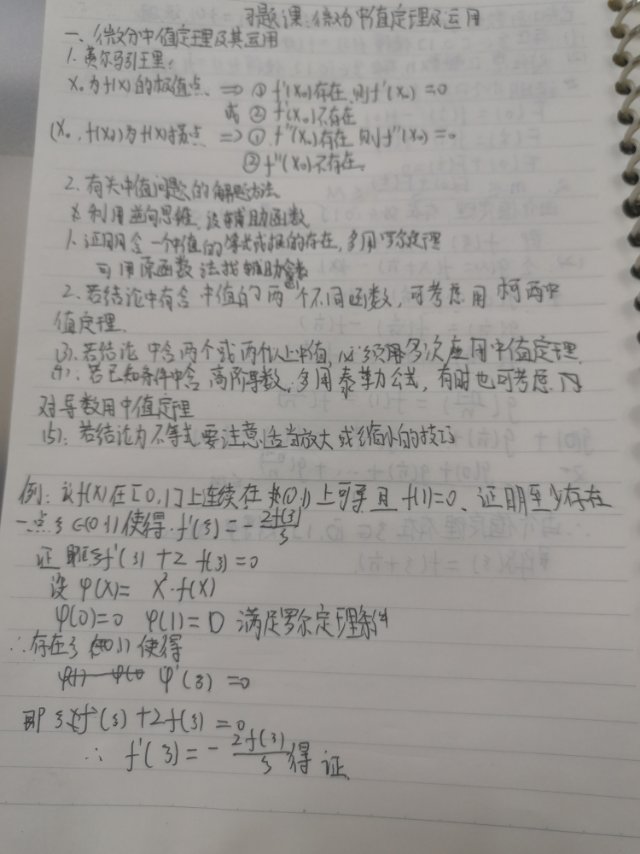 习题课:微分中值定理及运用
一、微分中值定理及其运用
1. 费尔马引理:
X₀为f(x)的极值点 ⟹ ① f'(X₀)存在,则f'(X₀)=0
或 ② f'(X₀)不存在
(X₀,f(X₀)为f(x)拐点 ⟹ ① f''(X₀)存在 则f''(X₀)=0
② f''(X₀)不存在.
2. 有关中值问题的解题方法
利用逆向思维,设辅助函数
1. 证明含一个中值的等式或根的存在,多用罗尔定理
可用原函数法找辅助函数
2. 若结论中有含中值的两个不同函数,可考虑用柯西中
值定理.
(3). 若结论中含两个或两个以上中值,必须用多次应用中值定理
(4). 若已知条件中含高阶导数,多用泰勒公式,有时也可考虑
对导数用中值定理
(5). 若结论为不等式要注意适当放大或缩小的技巧
例: 设f(x)在[0,1]上连续在(0,1)上可导且f(1)=0、证明至少存在
一点ξ∈(0,1)使得f'(ξ)=-2f(ξ)/ξ
证 即ξf'(ξ)+2f(ξ)=0
设φ(x)=X²·f(x)
φ(0)=0 φ(1)=0 满足罗尔定理条件
∴存在ξ∈(0,1)使得
φ'(ξ)=0
即ξf'(ξ)+2f(ξ)=0
∴ f'(ξ)=-2f(ξ)/ξ 得证